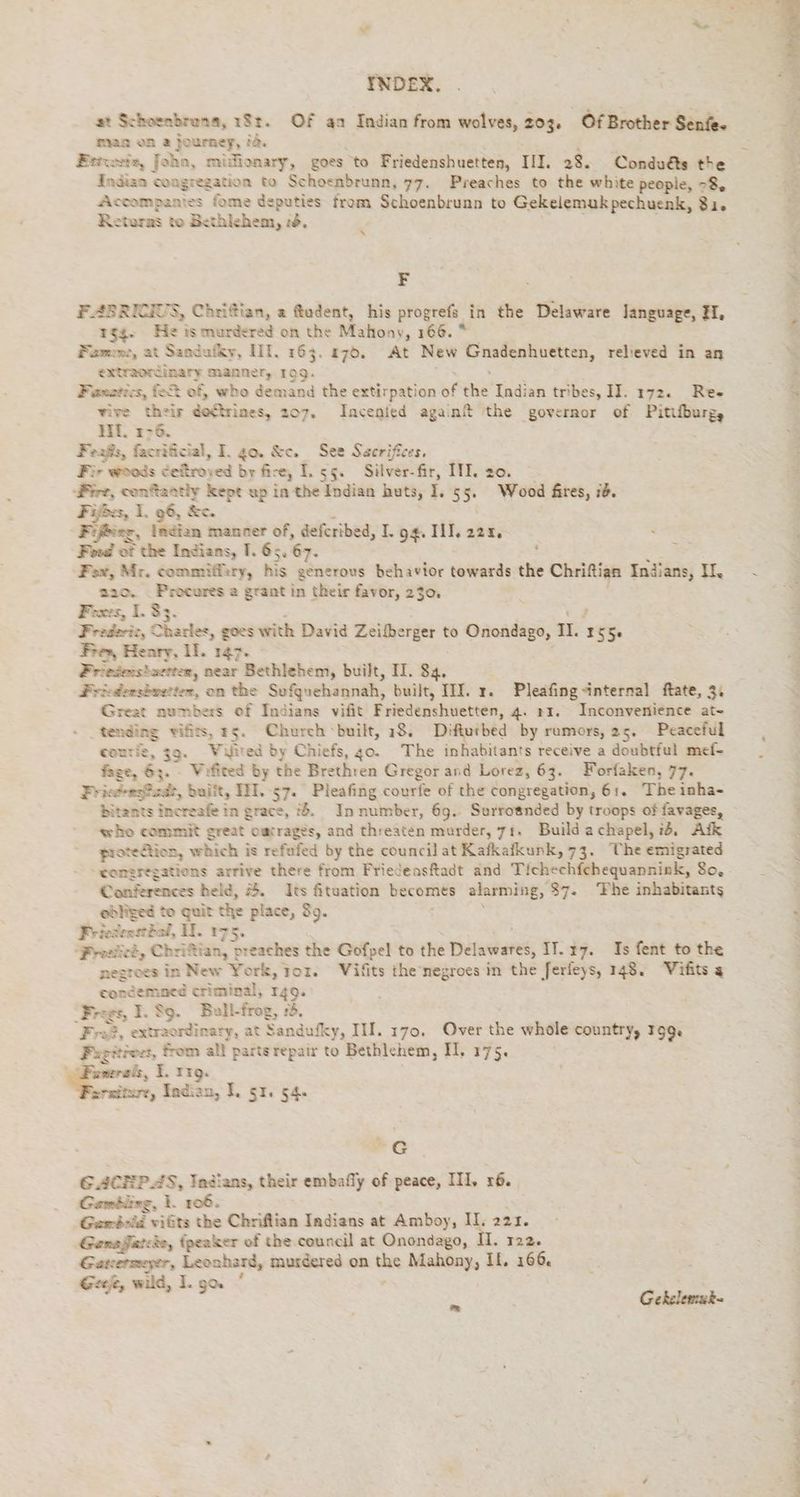 INDEX.
at Schoenbrunn, 181. Of an Indian from wolves, 203. Of Brother Senſe-
man on a journey, ib.
Ettwein, John, miſſionary, goes to Friedenshuetten, III. 28. Conducts the
Indian congregation to Schoenbrunn, 77. Preaches to the white people, 78.
Accompanies ſome deputies from Schoenbrunn to Gekelemukpechuenk, 81.
Returns to Bethlehem, ib.
F
FABRICIUS, Chriſtian, a ſtudent, his progreſs in the Delaware language, II.
154. He is murdered on the Mahony, 166.
Famine, at Sanduſky, III. 163. 170. At New Gnadenhuetten, relieved in an
extraordinary manner, 199.
Fanatics, ſect of, who demand the extirpation of the Indian tribes, II. 172. Re-
vive their doctrines, 207. Incenſed againſt the governor of Pittſburg,
III. 176.
Feaſts, ſacrificial, I. 40. &c. See Sacrifices.
Fir woods deſtroyed by fire, I. 55. Silver-fir, III. 20.
Fire, conſtantly kept up in the Indian huts, I. 55. Wood fires, ib.
Fiſhes, I. 96, &c.
Fiſhing, Indian manner of, deſcribed, I. 94. III. 221.
Food of the Indians, I. 65. 67.
Fox, Mr. commiſſary, his generous behavior towards the Chriſtian Indians, II.
220. Procures a grant in their favor, 230.
Foxes, I. 83.
Frederic, Charles, goes with David Zeiſberger to Onondago, II. 155.
Frey, Henry, II. 147.
Friedenshuetten, near Bethlehem, built, II. 84.
Friedenshuetten, on the Suſquehannah, built, III. 1. Pleaſing internal ſtate, 3.
Great numbers of Indians viſit Friedenshuetten, 4. 11. Inconvenience at-
tending viſits, 15. Church built, 18. Diſturbed by rumors, 25. Peaceful
courſe, 39. Viſited by Chiefs, 40. The inhabitants receive a doubtful meſ-
ſage, 63. Viſited by the Brethren Gregor and Lorez, 63. Forſaken, 77.
Friedensſtadt, built, III. 57. Pleaſing courſe of the congregation, 61. The inha-
bitants increaſe in grace, ib. In number, 69. Surrounded by troops of ſavages,
who commit great outrages, and threaten murder, 71. Build a chapel, ib. Aſk
protection, which is refuſed by the council at Kaſkaſkunk, 73. The emigrated
congregations arrive there from Friedensſtadt and Tſchechſchequannink, 80.
Conferences held, ib. Its ſituation becomes alarming, 87. The inhabitants
obliged to quit the place, 89.
Friedensthal, II. 175.
Froelich, Chriſtian, preaches the Goſpel to the Delawares, II. 17. Is ſent to the
negroes in New York, 101. Viſits the negroes in the Jerſeys, 148. Viſits a
condemned criminal, 149.
Frogs, I. 89. Bull-frog, ib.
Froſt, extraordinary, at Sanduſky, III. 170. Over the whole country, 199.
Fugitives, from all parts repair to Bethlehem, II. 175.
Funerals, I. 119.
Furniture, Indian, I. 51. 54.
G
GACHPAS, Indians, their embaſſy of peace, III. 16.
Gambling, I. 106.
Gambold viſits the Chriſtian Indians at Amboy, II. 221.
Ganaſſateko, ſpeaker of the council at Onondago, II. 122.
Gattermeyer, Leonhard, murdered on the Mahony, II. 166.
Geeſe, wild, I. 90.
Gekelemuk-